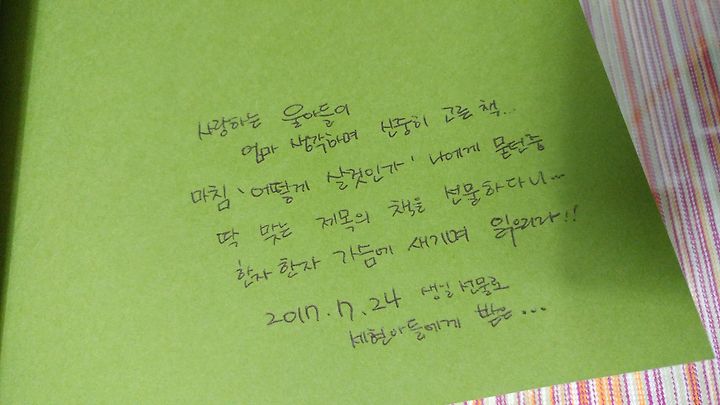 사랑하는 울아들이
엄마 생각하며 신중히 고른 책...
마침 '어떻게 살것인가' 나에게 묻던중
딱 맞는 제목의 책을 선물하다니...
한자 한자 가슴에 새기며 읽으리라!!
2017.7.24 생일 선물로
세현아들에게 받은...